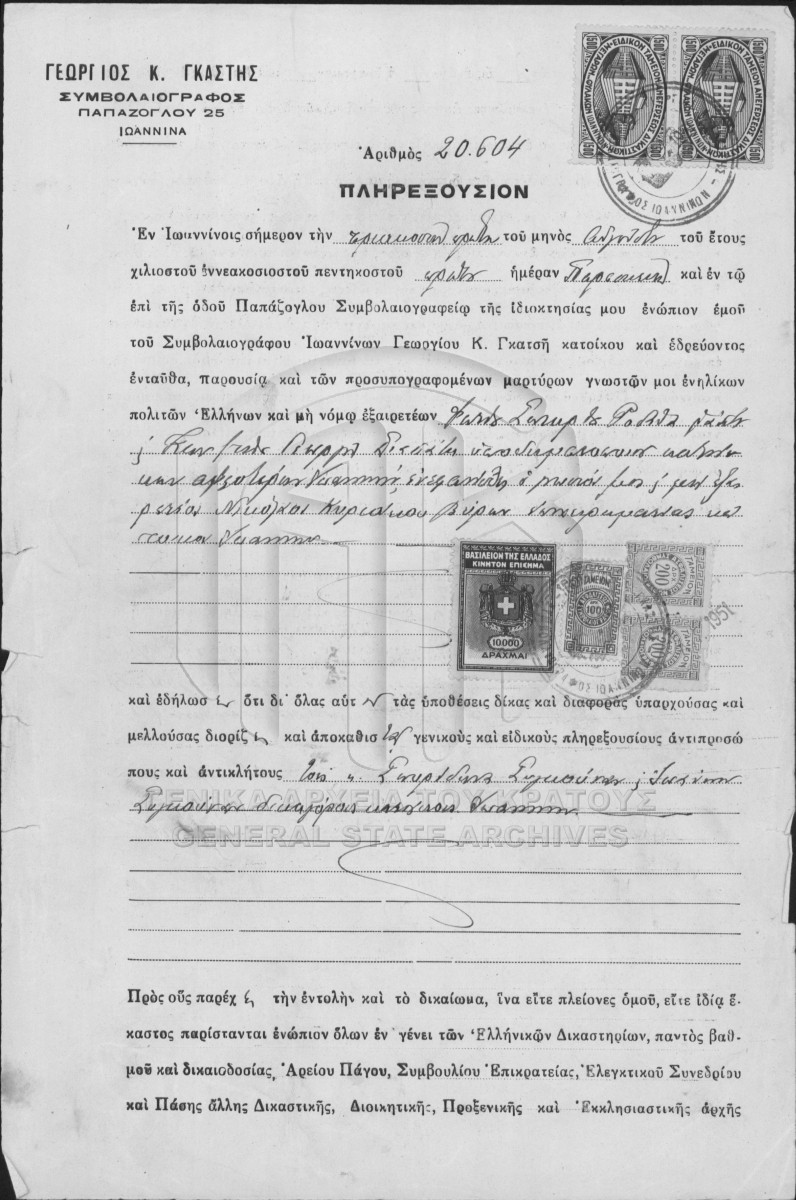 ΓΕΩΡΓΙΟΣ Κ. ΓΚΑΣΤΗΣ
ΣΥΜΒΟΛΑΙΟΓΡΑΦΟΣ
ΠΑΠΑΖΟΓΛΟΥ 25
ΙΩΑΝΝΙΝΑ
Ἀριθμὸς 20.604
ΠΛΗΡΕΞΟΥΣΙΟΝ
Ἐν Ἰωαννίνοις σήμερον τὴν τριακοστὴν πρώτην τοῦ μηνὸς Αὐγούστου τοῦ ἔτους
χιλιοστοῦ ἐννεακοσιοστοῦ πεντηκοστοῦ πρώτου ἡμέραν Παρασκευὴ καὶ ἐν τῷ
ἐπὶ τῆς ὁδοῦ Παπάζογλου Συμβολαιογραφείῳ τῆς ἰδιοκτησίας μου ἐνώπιον ἐμοῦ
τοῦ Συμβολαιογράφου Ἰωαννίνων Γεωργίου Κ. Γκατσῆ κατοίκου καὶ ἑδρεύοντος
ἐνταῦθα, παρουσίᾳ καὶ τῶν προσυπογραφομένων μαρτύρων γνωστῶν μοι ἐνηλίκων
πολιτῶν Ἑλλήνων καὶ μὴ νόμῳ ἐξαιρετέων
ἀμφοτέρων ἐνεφανίσθη ὁ
Νικόλαος Κυριάκου
ΒΑΣΙΛΕΙΟΝ ΤΗΣ ΕΛΛΑΔΟΣ
ΚΙΝΗΤΟΝ ΕΠΙΣΗΜΑ
10000
ΔΡΑΧΜΑΙ
ΤΑΜΕΙΟΝ
100
ΤΑΜΕΙΟΝ
200
1951
καὶ ἐδήλωσ ε ὅτι δι᾽ ὅλας αὐτ τὰς ὑποθέσεις δίκας καὶ διαφορὰς ὑπαρχούσας καὶ
μελλούσας διορίζ ει καὶ ἀποκαθισ τᾷ γενικοὺς καὶ εἰδικοὺς πληρεξουσίους ἀντιπροσώ
πους καὶ ἀντικλήτους τοὺς κ. Σπυρίδωνα
δικηγόρους κατοίκους Ἰωαννίνων
ΓΕΝΙΚΑ ΑΡΧΕΙΑ ΤΟΥ ΚΡΑΤΟΥΣ
GENERAL STATE ARCHIVES
Πρὸς οὓς παρέχ ει τὴν ἐντολὴν καὶ τὸ δικαίωμα, ἵνα εἴτε πλείονες ὁμοῦ, εἴτε ἰδίᾳ ἕ-
καστος παρίστανται ἐνώπιον ὅλων ἐν γένει τῶν Ἑλληνικῶν Δικαστηρίων, παντὸς βαθ-
μοῦ καὶ δικαιοδοσίας, Ἀρείου Πάγου, Συμβουλίου Ἐπικρατείας, Ἐλεγκτικοῦ Συνεδρίου
καὶ Πάσης ἄλλης Δικαστικῆς, Διοικητικῆς, Προξενικῆς καὶ Ἐκκλησιαστικῆς ἀρχῆς